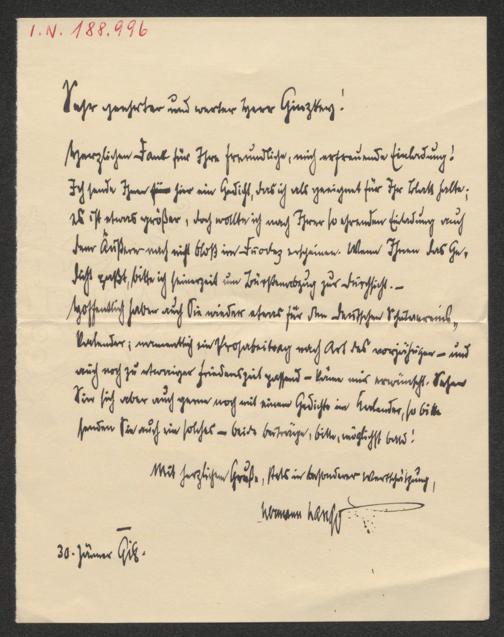 I.N. 188.996
Sehr geehrter und werter Herr Ginzkey!
Herzlichen Dank für Ihre freundliche, mich erfreuende Einladung!
Ich sende Ihnen hier ein Gedicht, das ich als geeignet für Ihr Blatt halte;
es ist etwas größer, doch wollte ich nach Ihrer so ehrenden Einladung auch
dem Äußeren nach nicht bloß im Duodez erscheinen. Wenn Ihnen das Ge-
dicht paßt, bitte ich seinerzeit um Bürstenabzug zur Durchsicht. –
Hoffentlich haben auch Sie wieder etwas für den Deutschen Schulvereins-
kalender; namentlich ein Prosabeitrag nach Art des vorjährigen – und
auch noch zu etwaiger Friedenszeit passend – käme mir erwünscht. Sehen
Sie sich aber auch gerne noch mit einem Gedichte im Kalender, so bitte
senden Sie auch ein solches – beide Beiträge, bitte, möglichst bald!
Mit herzlichem Gruße, stets in besonderer Wertschätzung,
Hermann
30. Jänner